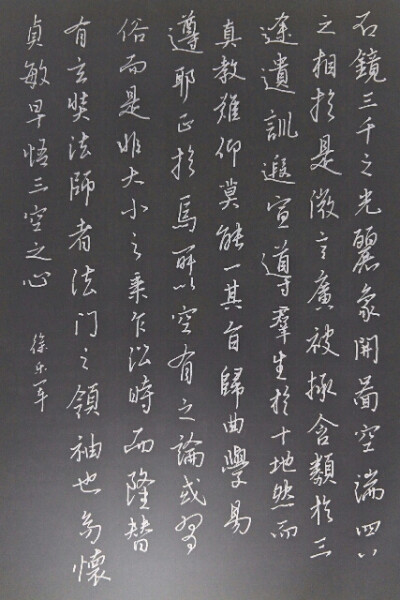 不鏡三千之光麗象開啚空端四八
之相於是微言廣被拯含類於三
途遺訓遐宣導羣生於十地然而
真教難仰莫能一其旨歸曲學易
遵耶正於焉所以空有之論或習
俗而是非大小之乘乍沿時而隆替
有玄奘法師者法門之領袖也幼懷
貞敏早悟三空之心
徐乐军